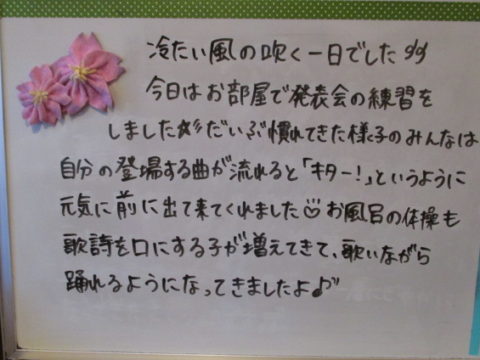 冷たい風の吹く一日でした
今日はお部屋で発表会の練習を
しました☆彡だいぶ慣れてきた様子のみんなは
自分の登場する曲が流れると「キター!」というように
元気に前に出て来てくれました☺お風呂の体操も
歌詩を口にする子が増えてきて、歌いながら
踊れるようになってきましたよ♪